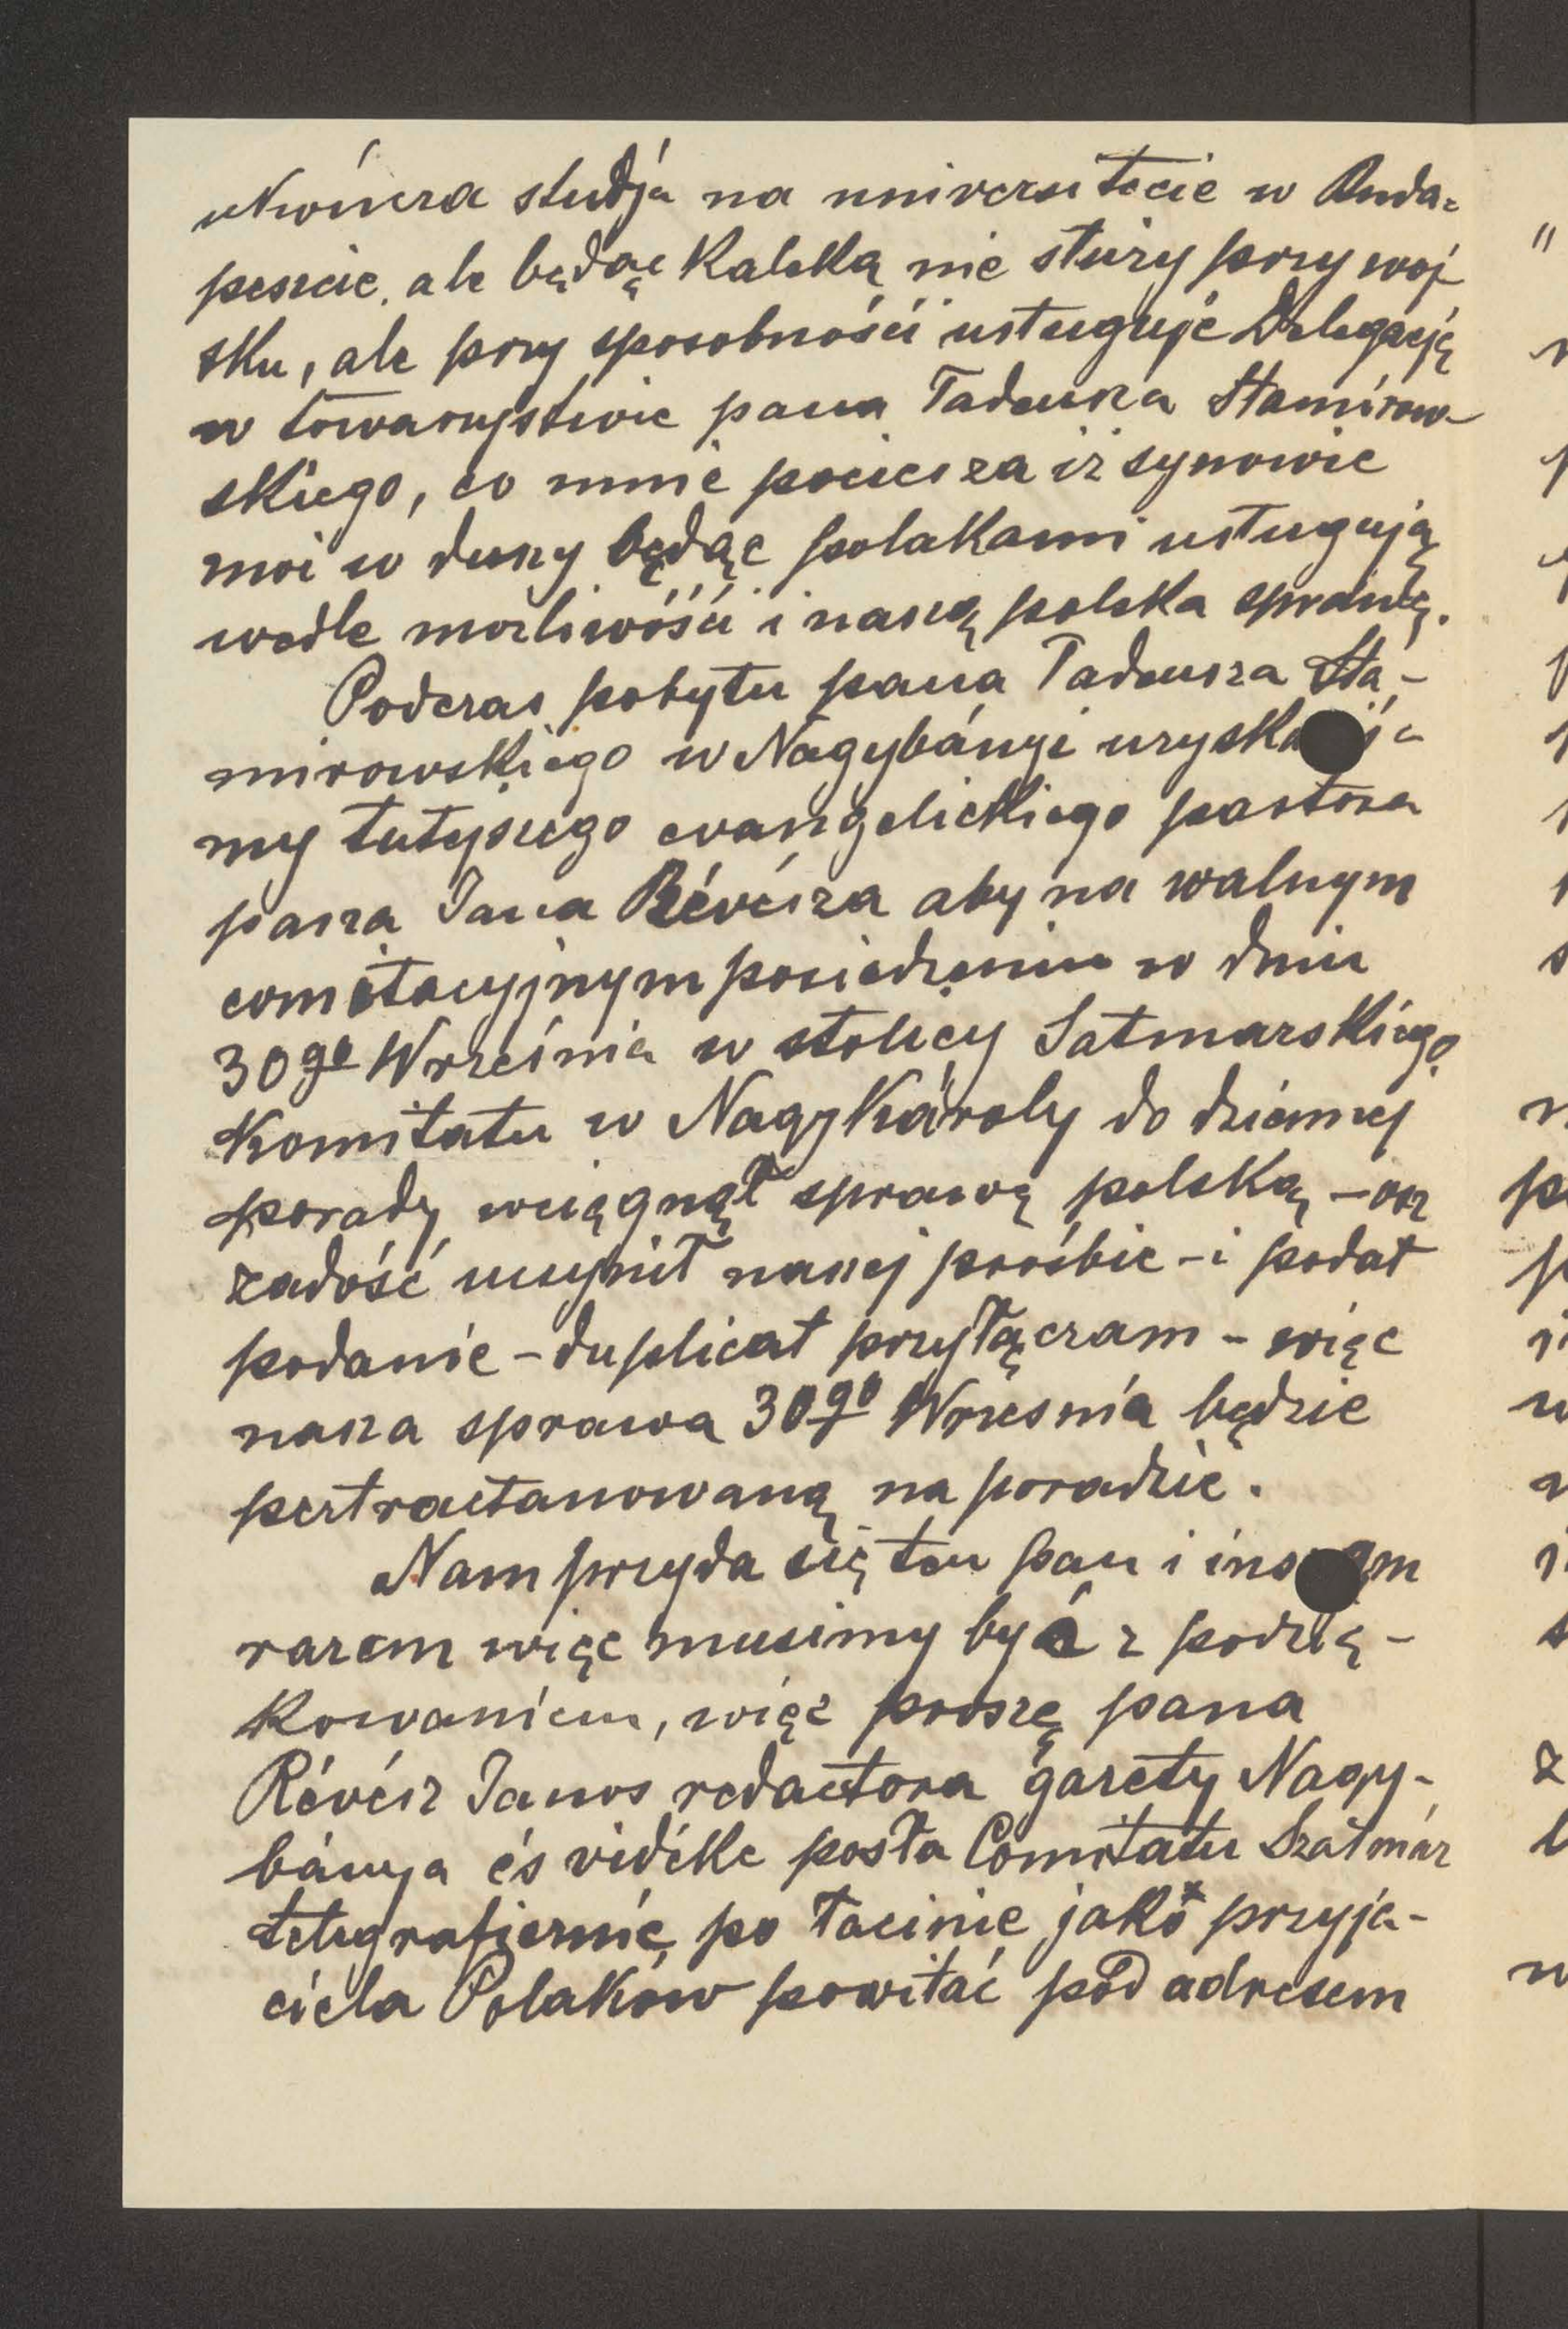 studja na universitecie w Buda-
peszcie, ale będąc Kaleką nie służy przy woj
sku, ale przy sposobnośći usługuje Delegacją
w towarzystwie pana Tadeusza Stamirow-
skiego, co mnie pociesza iż synowie
moi w duszy będąc polakami usługują
wedle możliwośći i naszą polska sprawę.
Podczas pobytu pana Tadeusza Sta-
mirowskiego w Nagybányi
my tutejszego evangelickiego pastora
pana Jana Révésza aby na walnym
comitacyjnym posiedzeniu w dniu
30go Września w stolicy Satmarskiego
Komitatu w NagyKároly do dziennej
porady wciągnął sprawę polską, –
zadość uczynił naszej prośbie – i podał
podanie – duplicat przyłączam – więc
nasza sprawa 30go Wrzesnia będzie
pertractanowaną na poradzie.
Nam przyda się ten pan i
razem więc musimy być z podzię-
kowaniem, więc proszę pana
Révész Janos redactora gazety Nagy-
bánya és vidéke posła Comitatu Szatmár
telegraficznie po łacinie jako przyja-
ciela Polaków powitać pod adresem